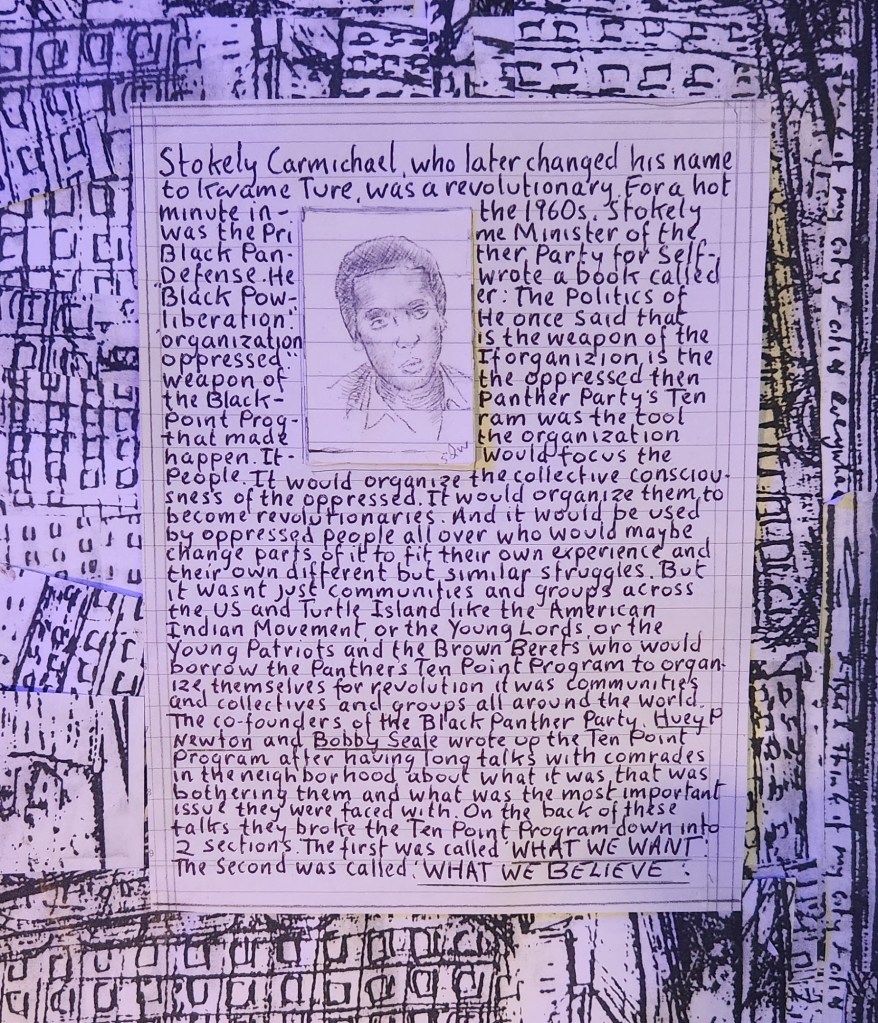 Stokely Carmichael, who later changed his name
to Kwame Ture, was a revolutionary. For a hot
minute in- the 1960s. Stokely
was the Pri me Minister of the
Black Pan- ther Party for Self-
Defense. He wrote a book called
"Black Pow- er: The Politics of
liberation." He once said that
organization is the weapon of the
oppressed". If organizion is the
weapon of the oppressed then
the Black- Panther Party's Ten
Point Prog- ram was the tool
that made the organization
happen. It- would focus the
People. It would organize the collective consciou-
sness of the oppressed. It would organize them to
become revolutionaries. And it would be used
by oppressed people all over who would maybe
change parts of it to fit their own experience and
their own different but similar struggles. But
it wasnt just communities and groups across
the US and Turtle Island like the American
Indian Movement, or the Young Lords, or the
Young Patriots and the Brown Berets who would
borrow the Panther's Ten Point Program to organ-
ize themselves for revolution it was communities
and collectives and groups all around the world.
The co-founders of the Black Panther Party. Huey P
Newton and Bobby Seale wrote up the Ten Point
Program after having long talks with comrades
in the neighborhood about what it was that was
bothering them and what was the most important
issue they were faced with. On the back of these
talks they broke the Ten Point Program down into
2 sections. The first was called 'WHAT WE WANT'.
The Second was called: 'WHAT WE BELIEVE':
of my city
I think of my city